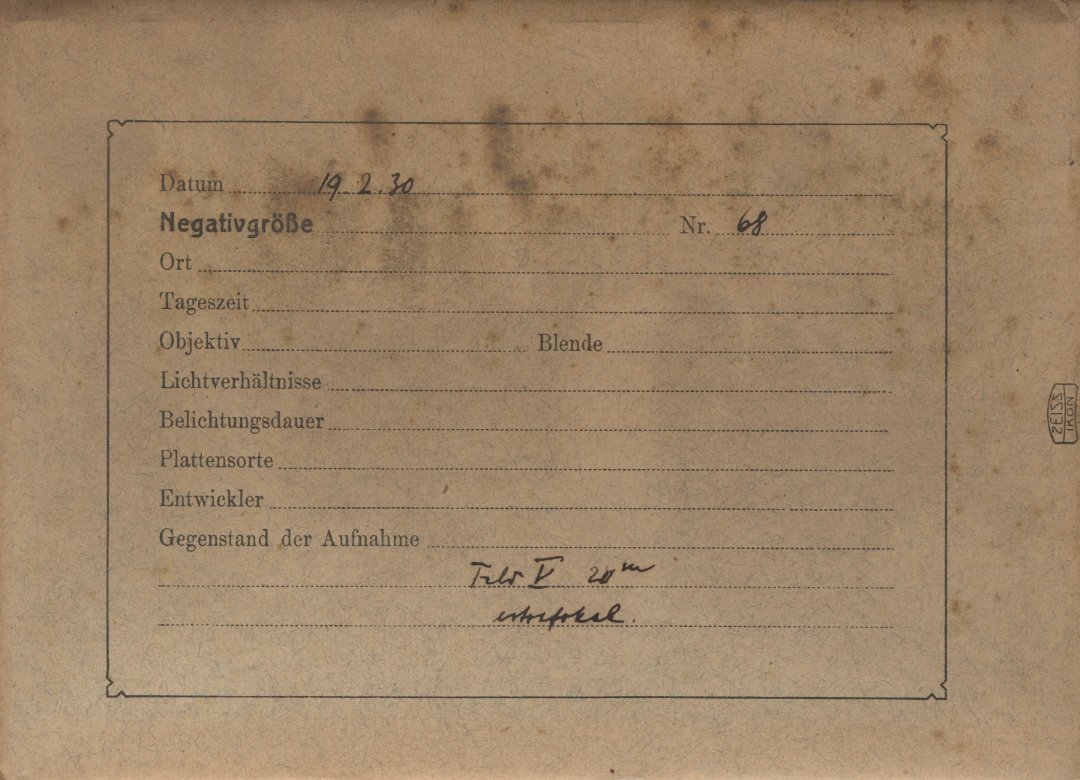 Datum 19.2.30
Negativgröße Nr. 68
Ort
Tageszeit
Objektiv Blende
Lichtverhältnisse
Belichtungsdauer
Plattensorte
Entwickler
Gegenstand der Aufnahme
Feld V 20m
extrafokal.
ZEISS
IKON